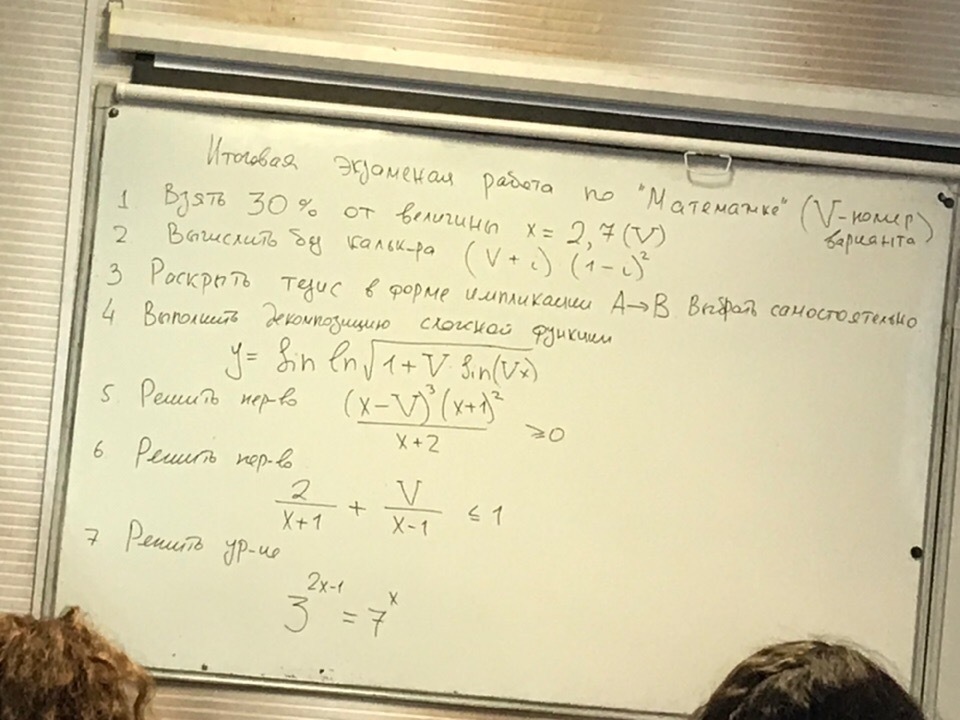 Итоговая экзаменая работа по "Математике" (V-номер варианта)
1 Взять 30% от величины x = 2,7(V)
2 Вычислить без кальк-ра (V + i) (1 - i)²
3 Раскрыть тезис в форме импликации A→B. Выбрать самостоятельно
4 Выполнить декомпозицию сложной функции
y = sin ln √(1 + V · sin(Vx))
5. Решить нер-во (x - V)³ (x+1)² / (x + 2) ≥ 0
6. Решить нер-во
2/(x+1) + V/(x-1) ≤ 1
7 Решить ур-ие
3^(2x-1) = 7^x